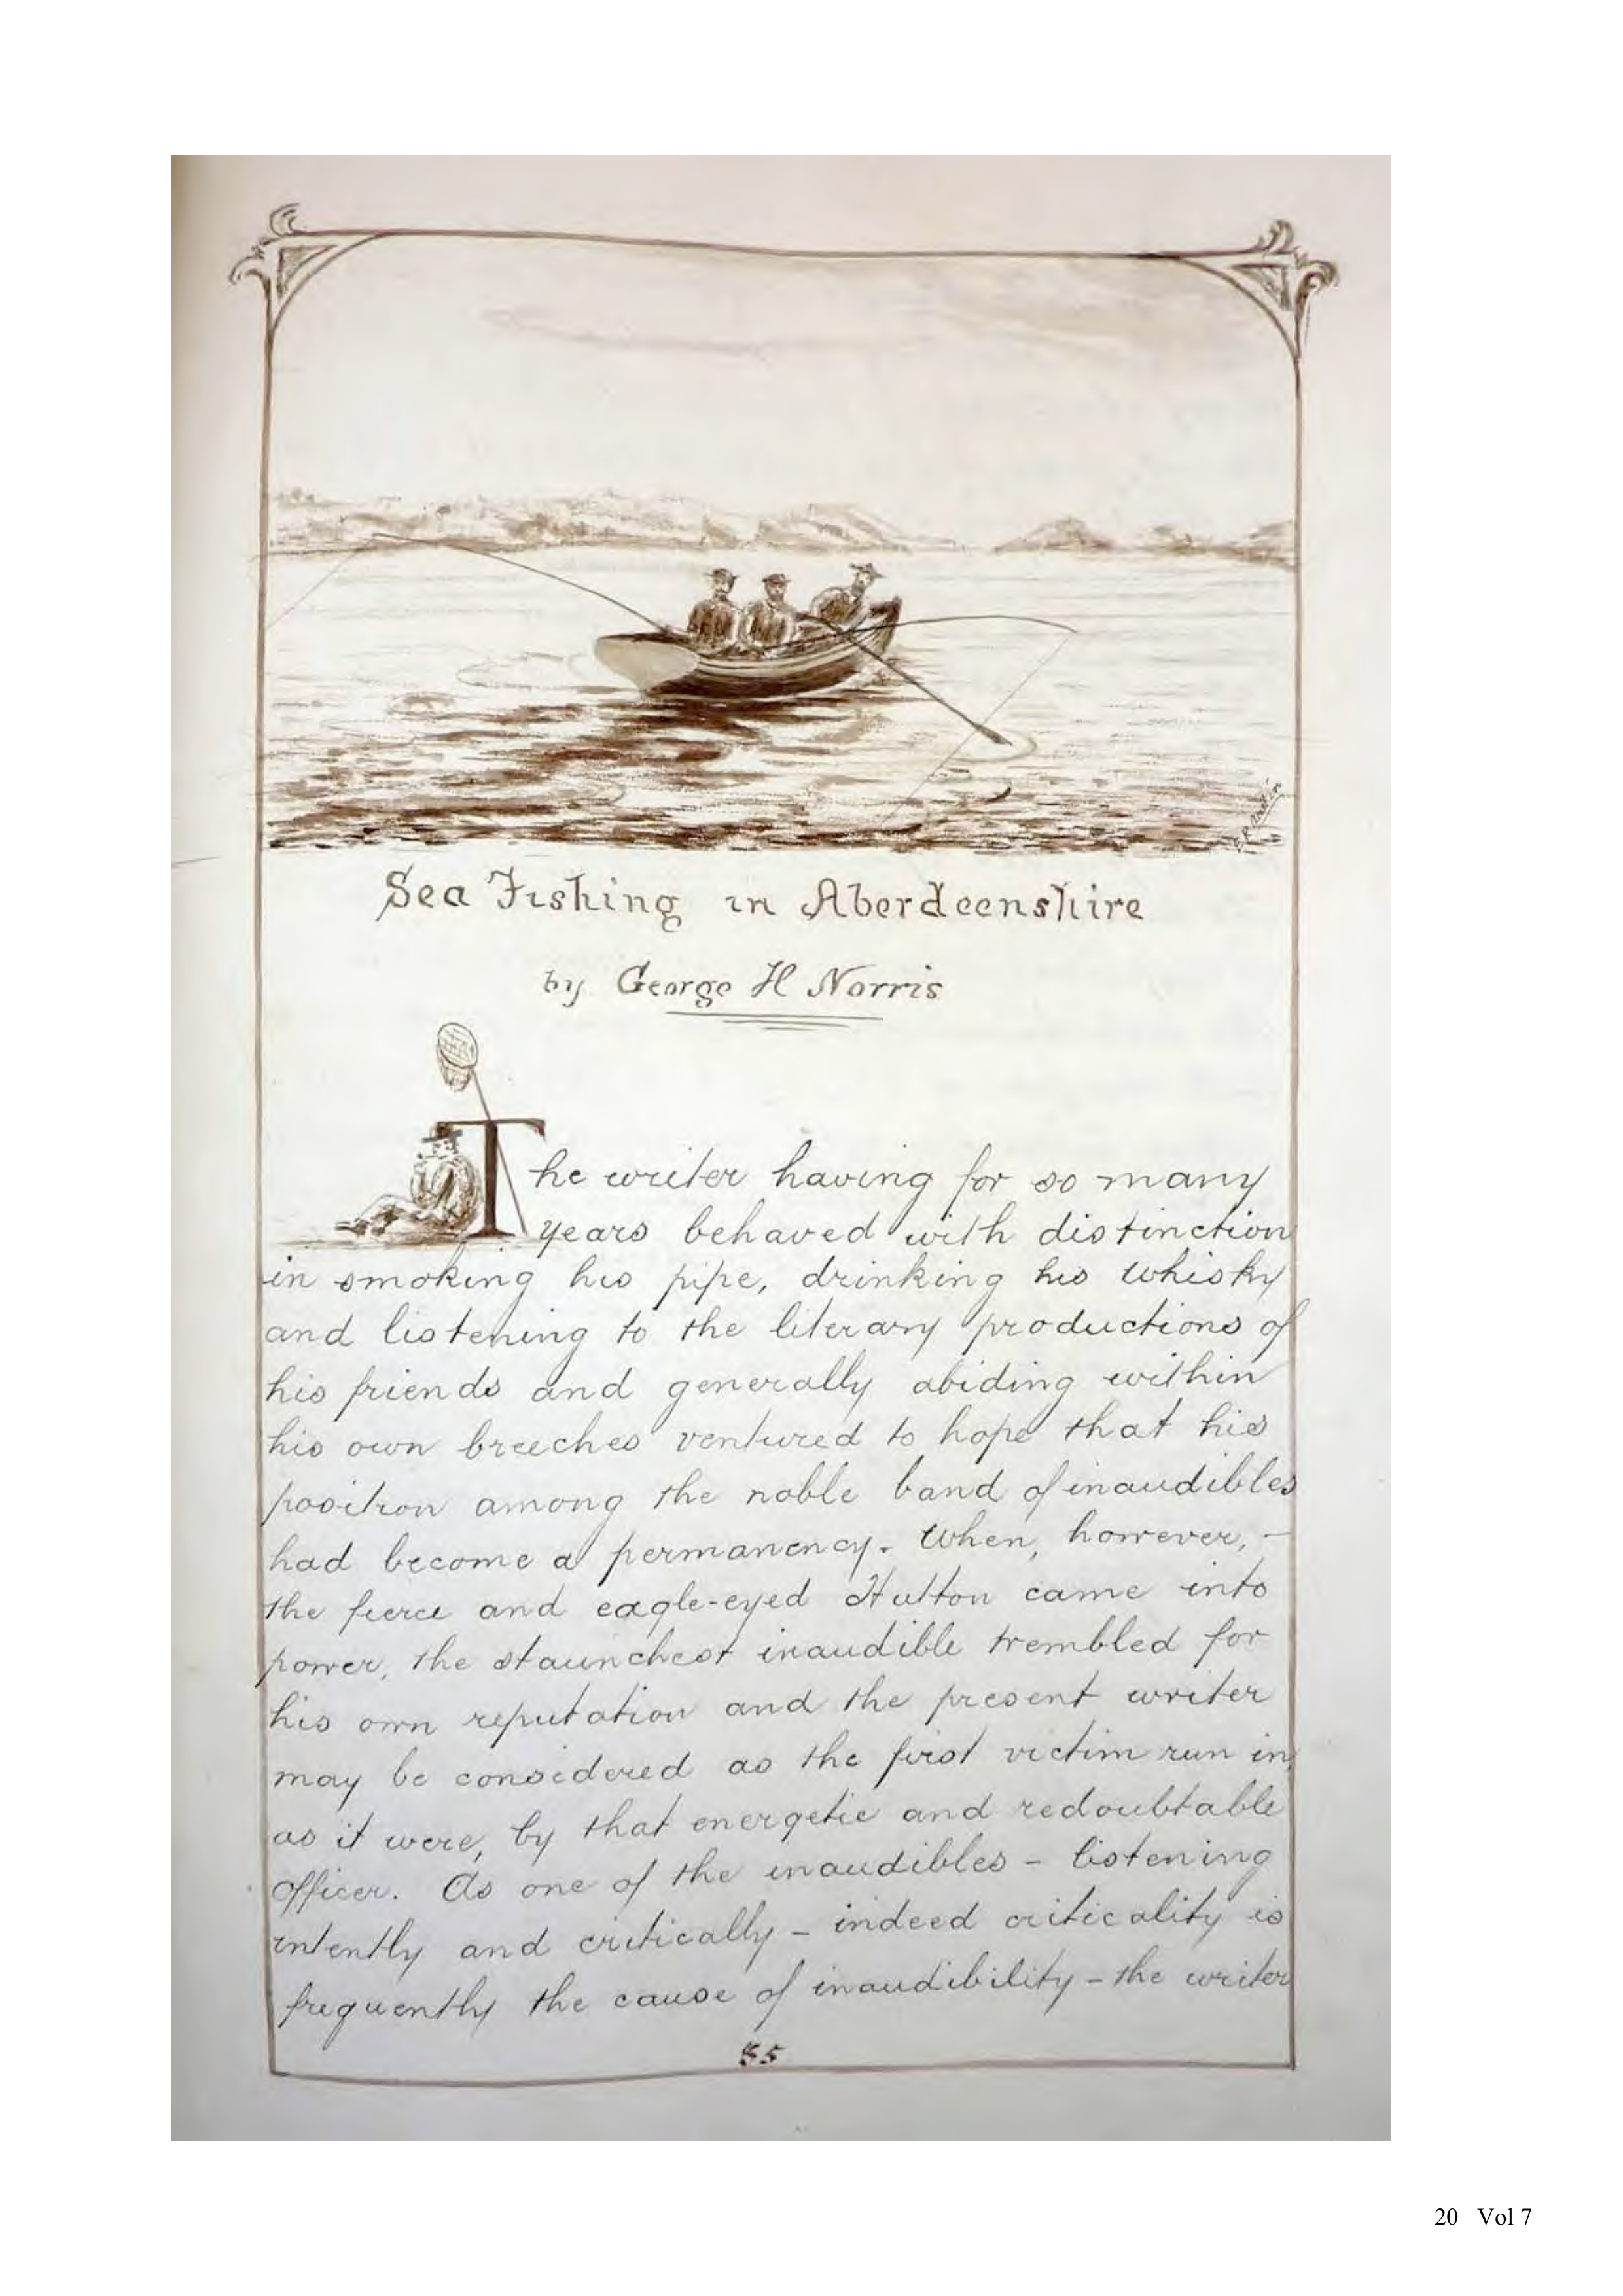 Sea Fishing in Aberdeenshire
by George H Norris
The writer having for so many
years behaved with distinction
in smoking his pipe, drinking his whisky
and listening to the literary productions of
his friends and generally abiding within
his own breeches ventured to hope that his
position among the noble band of inaudibles
had become a permanency. When, however, -
the fierce and eagle-eyed Hutton came into
power, the staunchest inaudible trembled for
his own reputation and the present writer
may be considered as the first victim run in,
as it were, by that energetic and redoubtable
officer. As one of the inaudibles - listening
intently and critically - indeed criticality is
frequently the cause of inaudibility - the writer
55
20 Vol 7